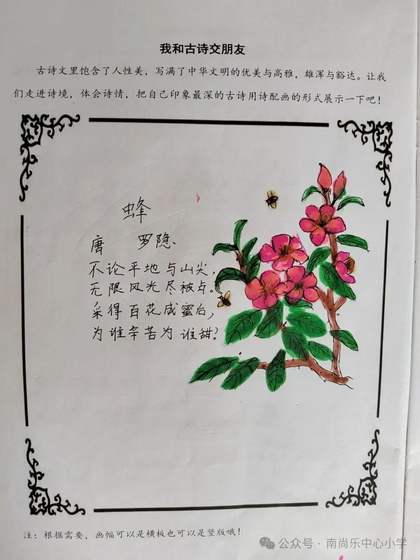 我和古诗交朋友
古诗文里饱含了人性美，写满了中华文明的优美与高雅，雄浑与豁达。让我
们走进诗境，体会诗情，把自己印象最深的古诗用诗配画的形式展示一下吧！
蜂
唐 罗隐
不论平地与山尖，
无限风光尽被占。
采得百花成蜜后，
为谁辛苦为谁甜？
注：根据需要，画幅可以是横板也可以是竖版哦！
公众号·南尚乐中心小学